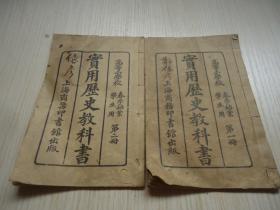 高等小學校
春季始業
學生用
第二冊
實用歷史教科書
上海商務印書館出版
高等小學校
春季始業
學生用
第一冊
實用歷史教科書
上海商務印書館出版